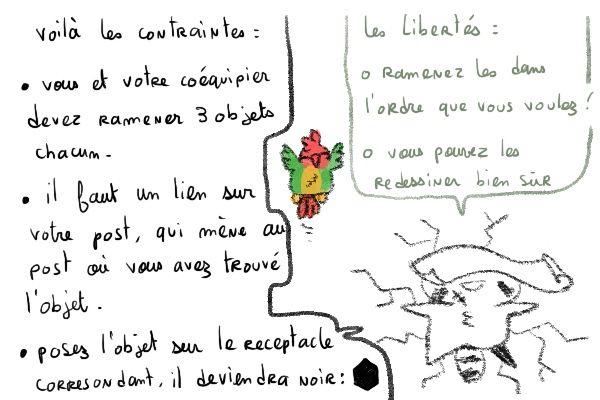 voilà les contraintes :
• vous et votre coéquipier
devez ramener 3 objets
chacun.
• il faut un lien sur
votre post, qui mène au
post où vous avez trouvé
l'objet.
• posez l'objet sur le receptacle
corresondant, il deviendra noir :
les libertés :
o Ramenez les dans
l'ordre que vous voulez !
o vous pouvez les
redessiner bien sûr